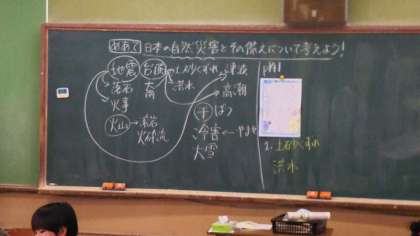 めあて 日本の自然災害とその備えについて考えよう!
地震 台風→土砂くずれ 津波
洪水 高潮
火事
火山→溶岩 干ばつ
火砕流 冷害←やませ
大雪
2. 土砂くずれ
洪水